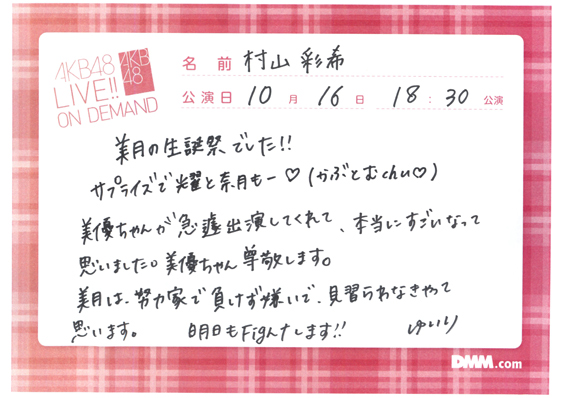 AKB48
LIVE!!
ON DEMAND
AKB
48
名前 村山 彩希
公演日 10月 16日 18:30公演
美月の生誕祭でした!!
サプライズで光耀と奈月もー♡(かぶとむchu♡)
美優ちゃんが急遽出演してくれて、本当にすごいなって
思いました。美優ちゃん尊敬します。
美月は、努力家で負けず嫌いで、見習らわなきゃって
思います。 明日もFightします!! ゆいり
DMM.com